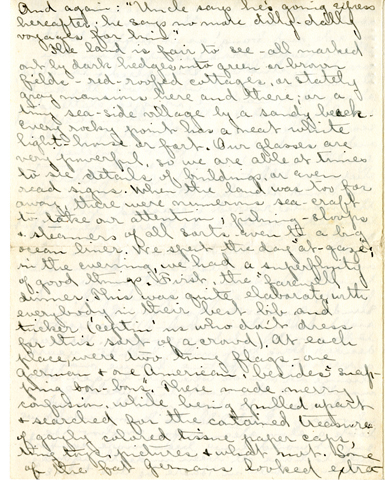 And again: "Uncle says he's going express
hereafter; he says no more dilly-dally
voyages for him."
The land is fair to see - all marked
out by dark hedges into green or brown
fields - red-roofed cottages, or stately
gray mansions here and there; or a
tiny sea-side village by a sandy beach.
Every rocky point has a neat white
light-house or fort. Our glasses are
very powerful, so we are able at times
to see details of buildings, or even
read signs. When the land was too far
away, there were numerous sea-craft
to take our attention; fishing-sloops
& steamers of all sorts even to a big
ocean liner. We spent the day "at-gaze";
in the evening, we had a superfluity
of good things. First, the "farewell
dinner. This was quite elaborate with
everybody in their best bib and
tucker (ceptin' us who don't dress
for this sort of a crowd). At each
place, were two tiny flags - one
German & one American, besides "snap-
ping bon-bons". These made merry
confusion while being pulled apart
& searched for the contained treasures
of gayly colored tissue paper caps,
tiny toys, pictures & what not. Some
of the fat Germans looked extra